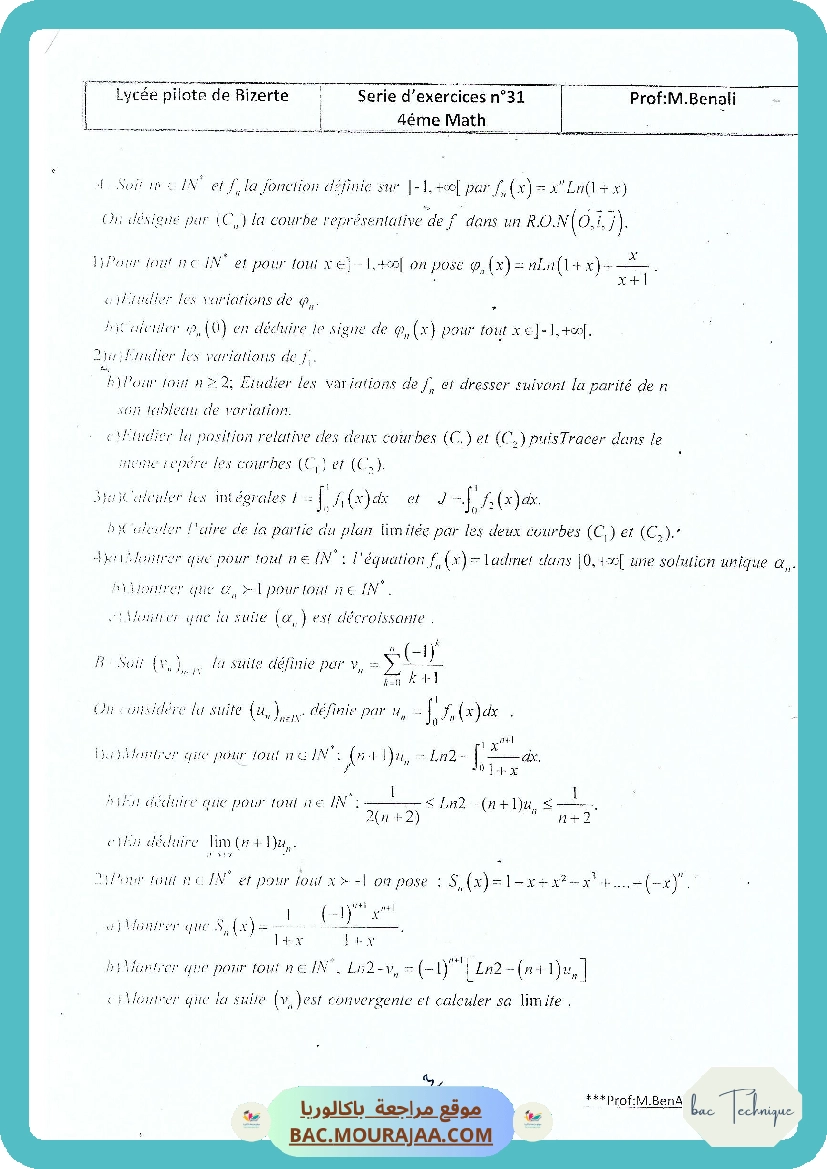 Lycée pilote de Bizerte
Serie d'exercices n°31
4éme Math
Prof:M.Benali
A- Soit n ∈ IN* et fₙ la fonction définie sur ]-1,+∞[ par fₙ(x) = xⁿLn(1+x)
On désigne par (Cₙ) la courbe représentative de f dans un R.O.N(O,i,j).
1)Pour tout n ∈ IN* et pour tout x ∈]-1,+∞[ on pose φₙ(x) = nLn(1+x)+ x/(x+1).
a)Etudier les variations de φₙ.
b)Calculer φₙ(0) en déduire le signe de φₙ(x) pour tout x ∈]-1,+∞[.
2)a)Etudier les variations de f₁.
b)Pour tout n ≥ 2; Etudier les variations de fₙ et dresser suivant la parité de n
son tableau de variation.
c)Etudier la position relative des deux courbes (C₁) et (C₂) puisTracer dans le
meme repére les courbes (C₁) et (C₂).
3)a)Calculer les intégrales I = ∫₀¹ f₁(x)dx et J = ∫₀¹ f₂(x)dx.
b)Calculer l'aire de la partie du plan limitée par les deux courbes (C₁) et (C₂).
4)a)Montrer que pour tout n ∈ IN* ; l'équation fₙ(x) = 1admet dans ]0,+∞[ une solution unique αₙ.
b)Montrer que αₙ > 1 pour tout n ∈ IN*.
c)Montrer que la suite (αₙ) est décroissante .
B- Soit (vₙ)ₙ∈IN la suite définie par vₙ = ∑ₖ₌₀ⁿ (-1)ᵏ/(k+1)
On considére la suite (uₙ)ₙ∈IN* définie par uₙ = ∫₀¹ fₙ(x)dx .
1)a)Montrer que pour tout n ∈ IN* ; (n+1)uₙ = Ln2 - ∫₀¹ xⁿ⁺¹/(1+x) dx.
b)En déduire que pour tout n ∈ IN* ; 1/(2(n+2)) ≤ Ln2 - (n+1)uₙ ≤ 1/(n+2).
c)En déduire lim (n+1)uₙ.
2)Pour tout n ∈ IN* et pour tout x > -1 on pose : Sₙ(x) = 1-x+x²-x³+....+(-x)ⁿ.
a)Montrer que Sₙ(x) = 1/(1+x) - (-1)ⁿ⁺¹xⁿ⁺¹/(1+x).
b)Montrer que pour tout n ∈ IN*, Ln2-vₙ = (-1)ⁿ⁺¹[Ln2-(n+1)uₙ]
c)Montrer que la suite (vₙ)est convergente et calculer sa limite .
***Prof:M.BenA
bac Technique
موقع مراجعة باكالوريا
BAC.MOURAJAA.COM